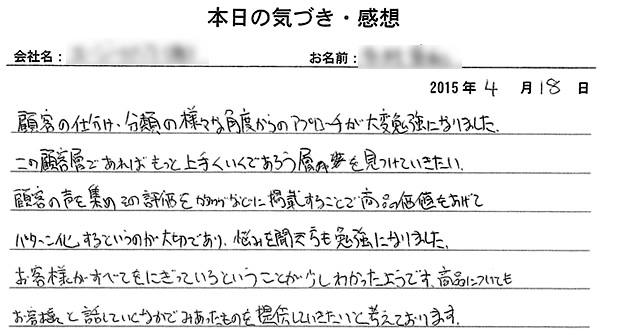 本日の気づき・感想
会社名：
お名前：
2015年 4 月 18 日
顧客の仕分け、分類の様々な角度からのアプローチが大変勉強になりました。
この顧客層であればもっと上手くいくであろう層の を見つけていきたい。
顧客の声を集め その評価を などに掲載することで商品価値をあげて
パターン化するというのが大切であり、悩みを聞く も勉強になりました。
お客様がすべてをにぎっているということが少しわかったようです。商品についても
お客様と話していくなかでみあったものを提供していきたいと考えております。